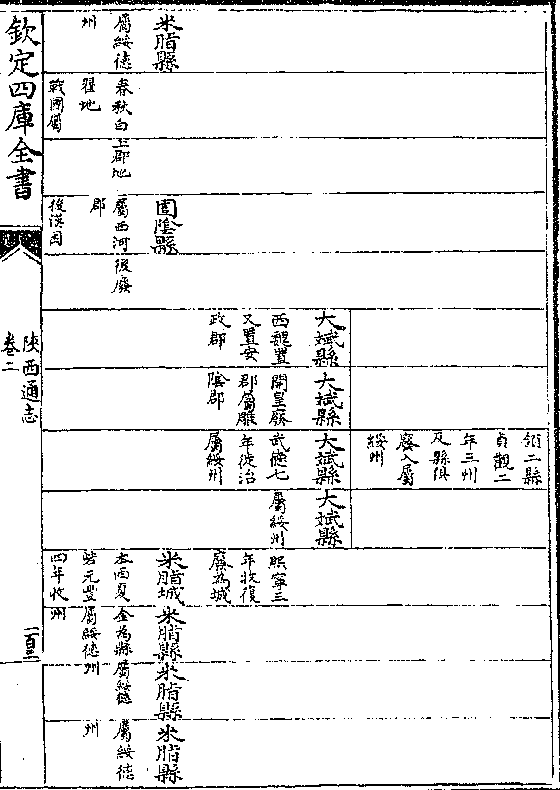 領二縣
貞觀二
年三州
及縣俱
廢入屬
綏州
大斌縣
西魏置
又置安
政郡
大斌縣
開皇廢
郡屬雕
陰郡
大斌縣
武德七
年徙治
屬綏州
大斌縣
屬綏州
熙寧三
年收復
廢為城
米脂縣
屬綏德
州
春秋白
翟地
戰國屬
上郡地
固陰縣
屬西河
郡
後漢因
後廢
米脂城
本西夏
砦元豐
四年收
米脂縣
金為縣
屬綏德
州
米脂縣
屬綏德
州
米脂縣
屬綏德
州
欽定四庫全書
陜西通志
卷二